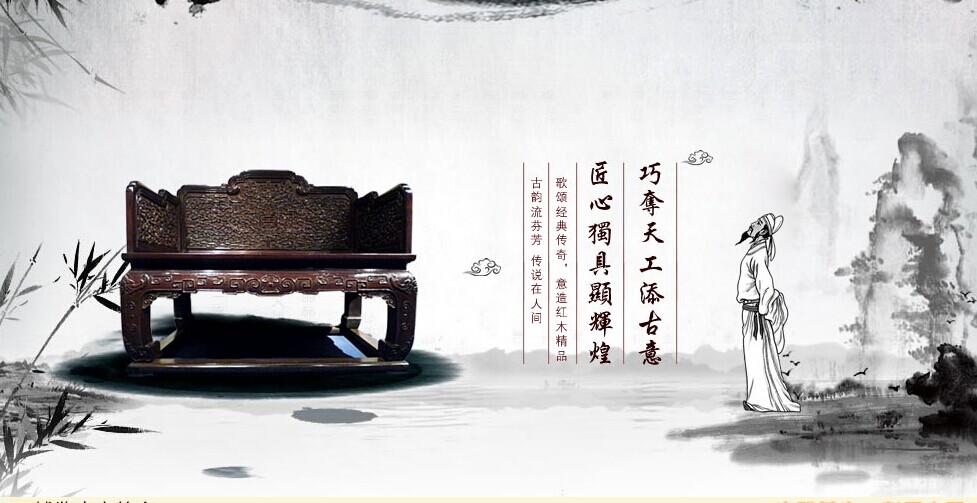 巧奪天工添古意
匠心獨具顯輝煌
歌颂经典传奇，意造红木精品
古韵流芬芳 传说在人间